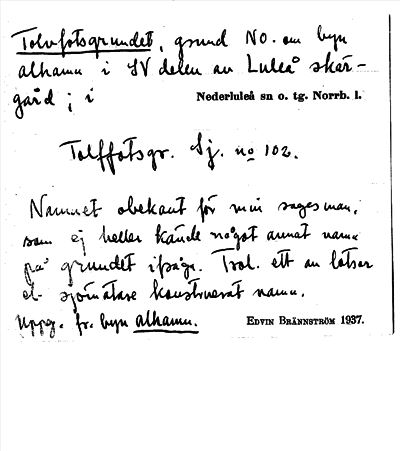 Tolvfotsgrundet, grund NO. om byn
alhamn i SV delen av Luleå skär-
gård ; i Nederluleå sn o. tg. Norrb. l.
Tolffotsgr. Sj. no 102.
Namnet obekant för min sagesman,
som ej heller kände något annat namn
på grundet ifråga. Trol. ett av lotsar
el. sjömätare konstruerat namn.
Uppg. fr. byn alhamn. EDVIN BRÄNNSTRÖM 1937.